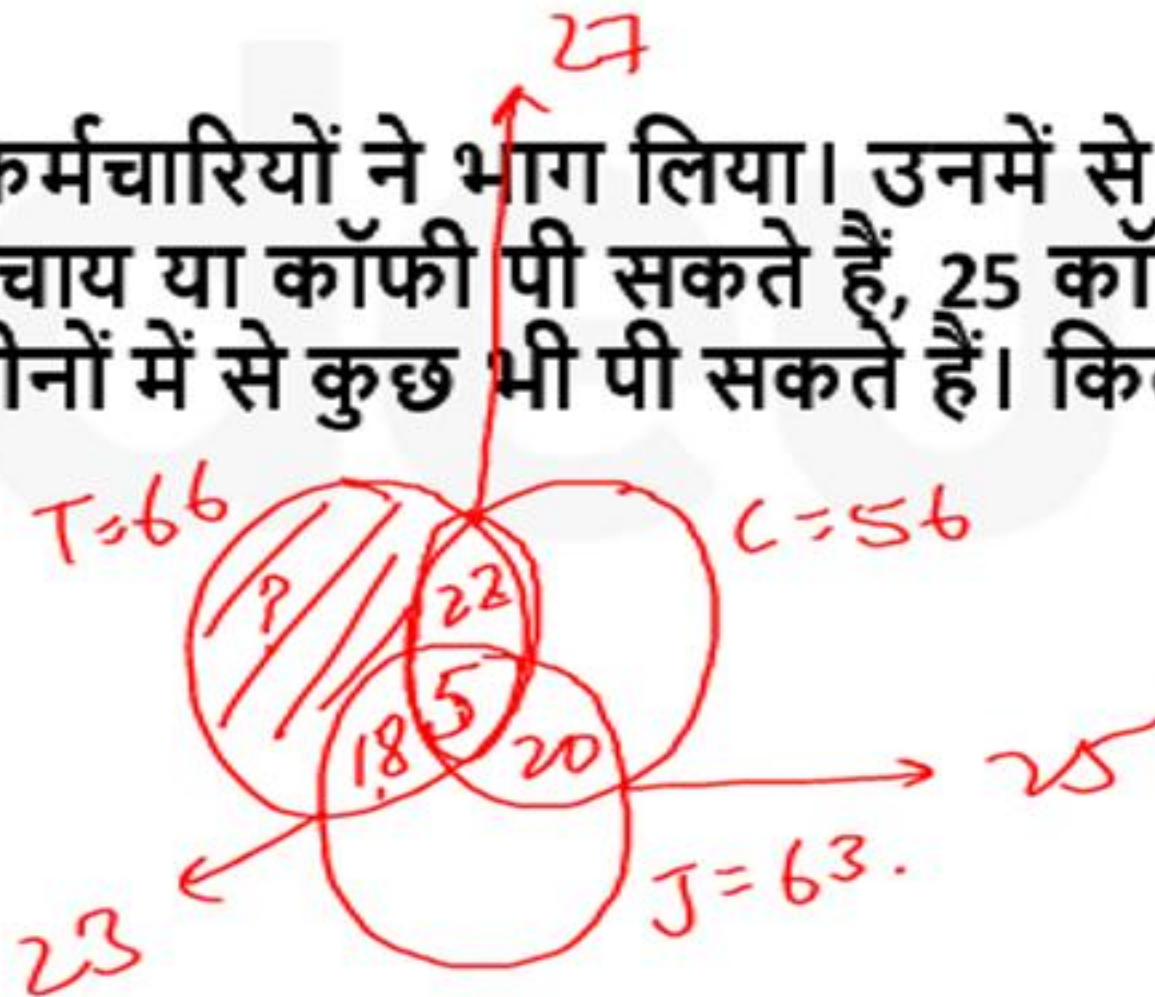 27
कर्मचारियों ने भाग लिया। उनमें से
चाय या कॉफी पी सकते हैं, 25 कॉ
तीनों में से कुछ भी पी सकते हैं।
T=66
C=56
?
22
5
18
20
25
J=63.
23